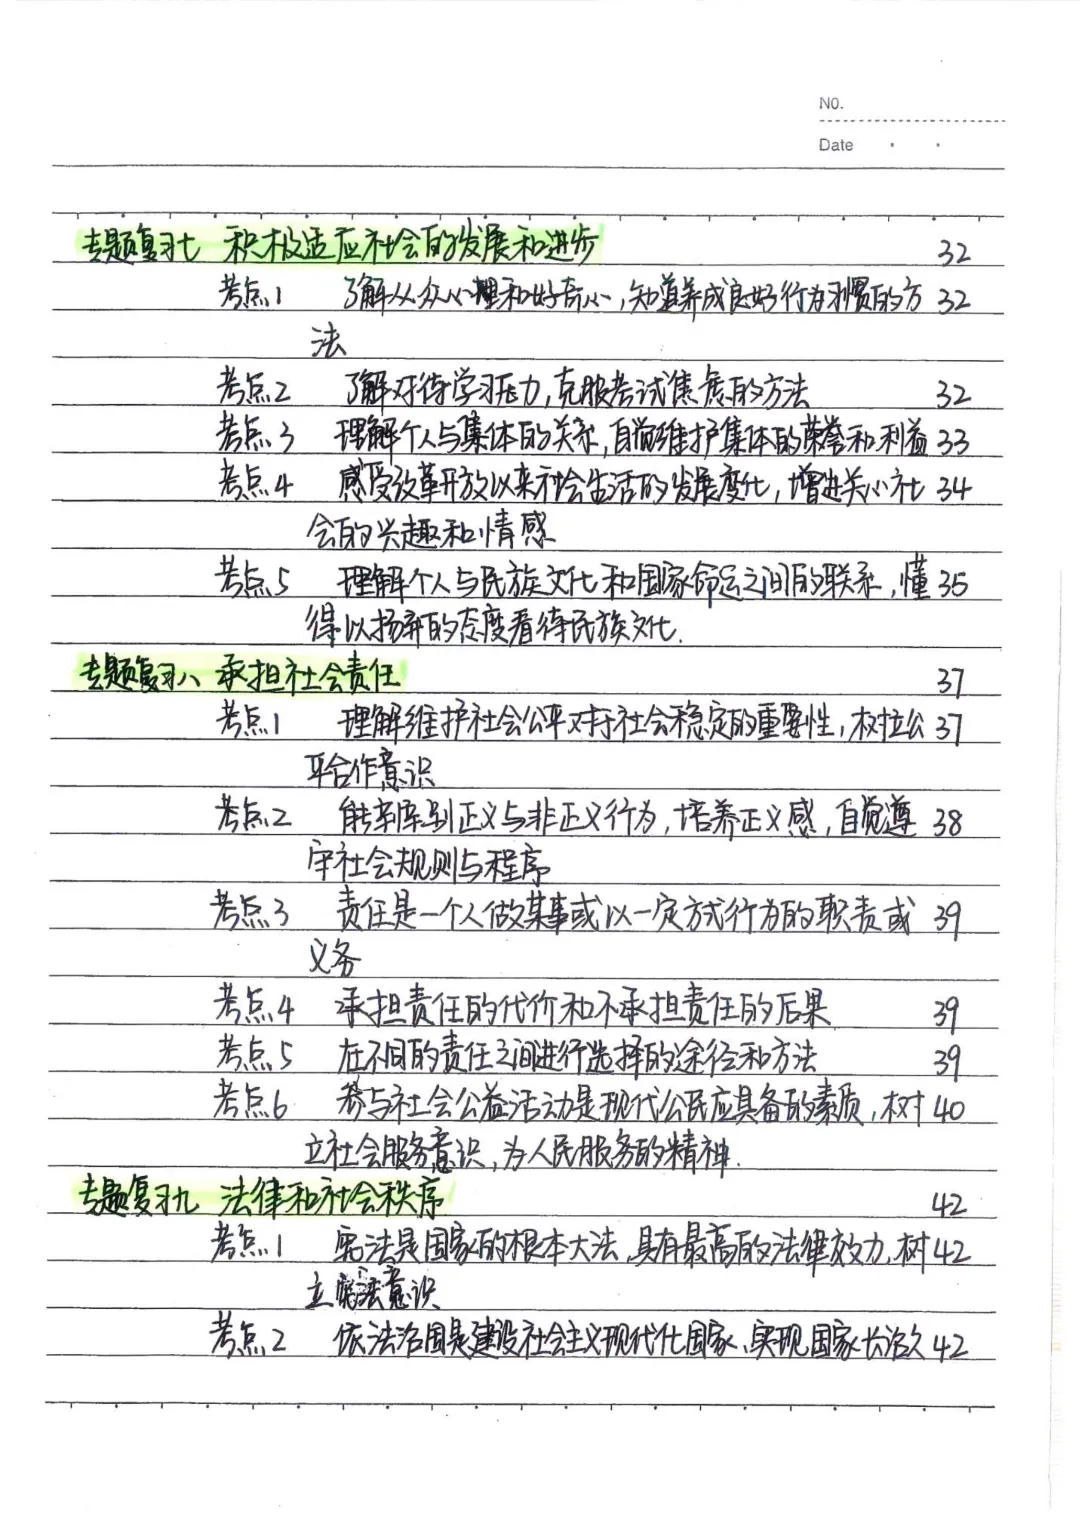 NO.
Date
专题复习七 积极适应社会的发展和进步 32
考点1 了解从众心理和好奇心,知道养成良好行为习惯的方 32
法
考点2 了解对待学习压力,克服考试焦虑的方法 32
考点3 理解个人与集体的关系,自觉维护集体的荣誉和利益 33
考点4 感受改革开放以来社会生活的发展变化,增进关心社 34
会的兴趣和情感
考点5 理解个人与民族文化和国家命运之间的联系,懂 35
得以扬弃的态度看待民族文化.
专题复习八 承担社会责任 37
考点1 理解维护社会公平对于社会稳定的重要性,树立公 37
平合作意识
考点2 能辨别正义与非正义行为,培养正义感,自觉遵 38
守社会规则与程序
考点3 责任是一个人做某事或以一定方式行为的职责或 39
义务
考点4 承担责任的代价和不承担责任的后果 39
考点5 在不同的责任之间进行选择的途径和方法 39
考点6 参与社会公益活动是现代公民应具备的素质,树 40
立社会服务意识,为人民服务的精神.
专题复习九 法律和社会秩序 42
考点1 宪法是国家的根本大法,具有最高的法律效力,树 42
立宪法意识
考点2 依法治国是建设社会主义现代化国家、实现国家长治久 42